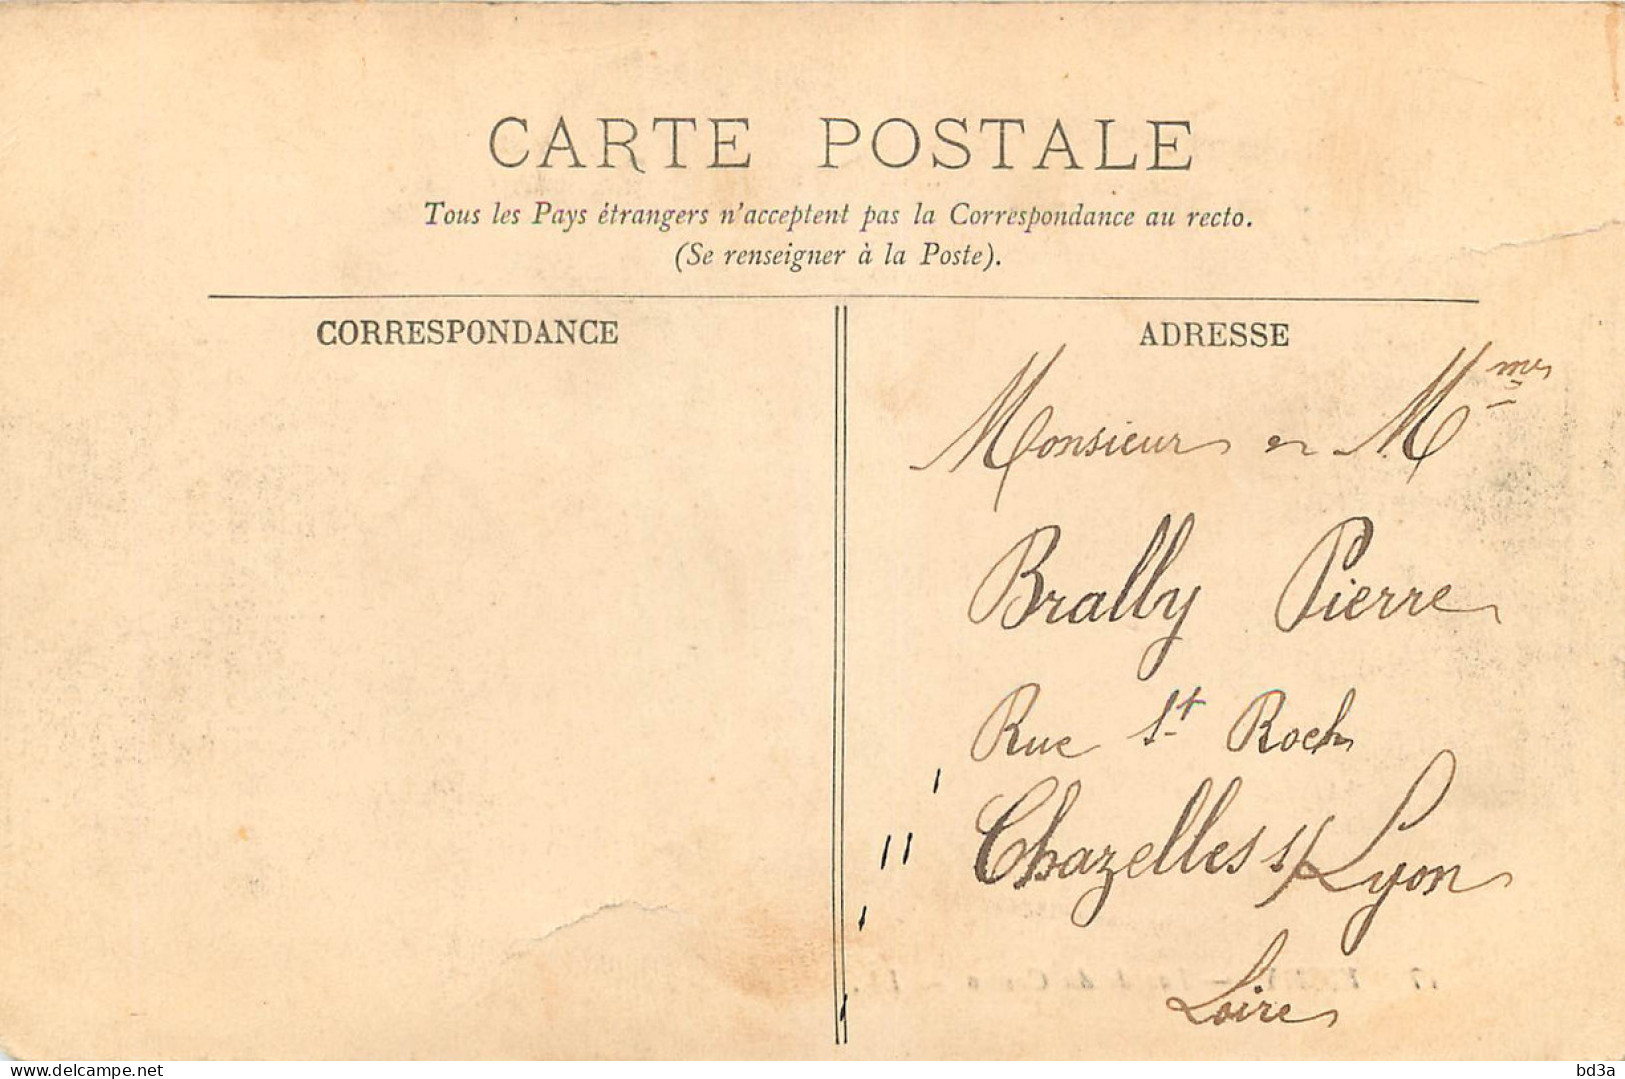 CARTE POSTALE
Tous les Pays étrangers n'acceptent pas la Correspondance au recto.
(Se renseigner à la Poste).
CORRESPONDANCE
ADRESSE
Monsieur et Mme
Brally Pierre
Rue St Roch
Chazelles s/ Lyon
Loire
www.delcampe.net
bd3a